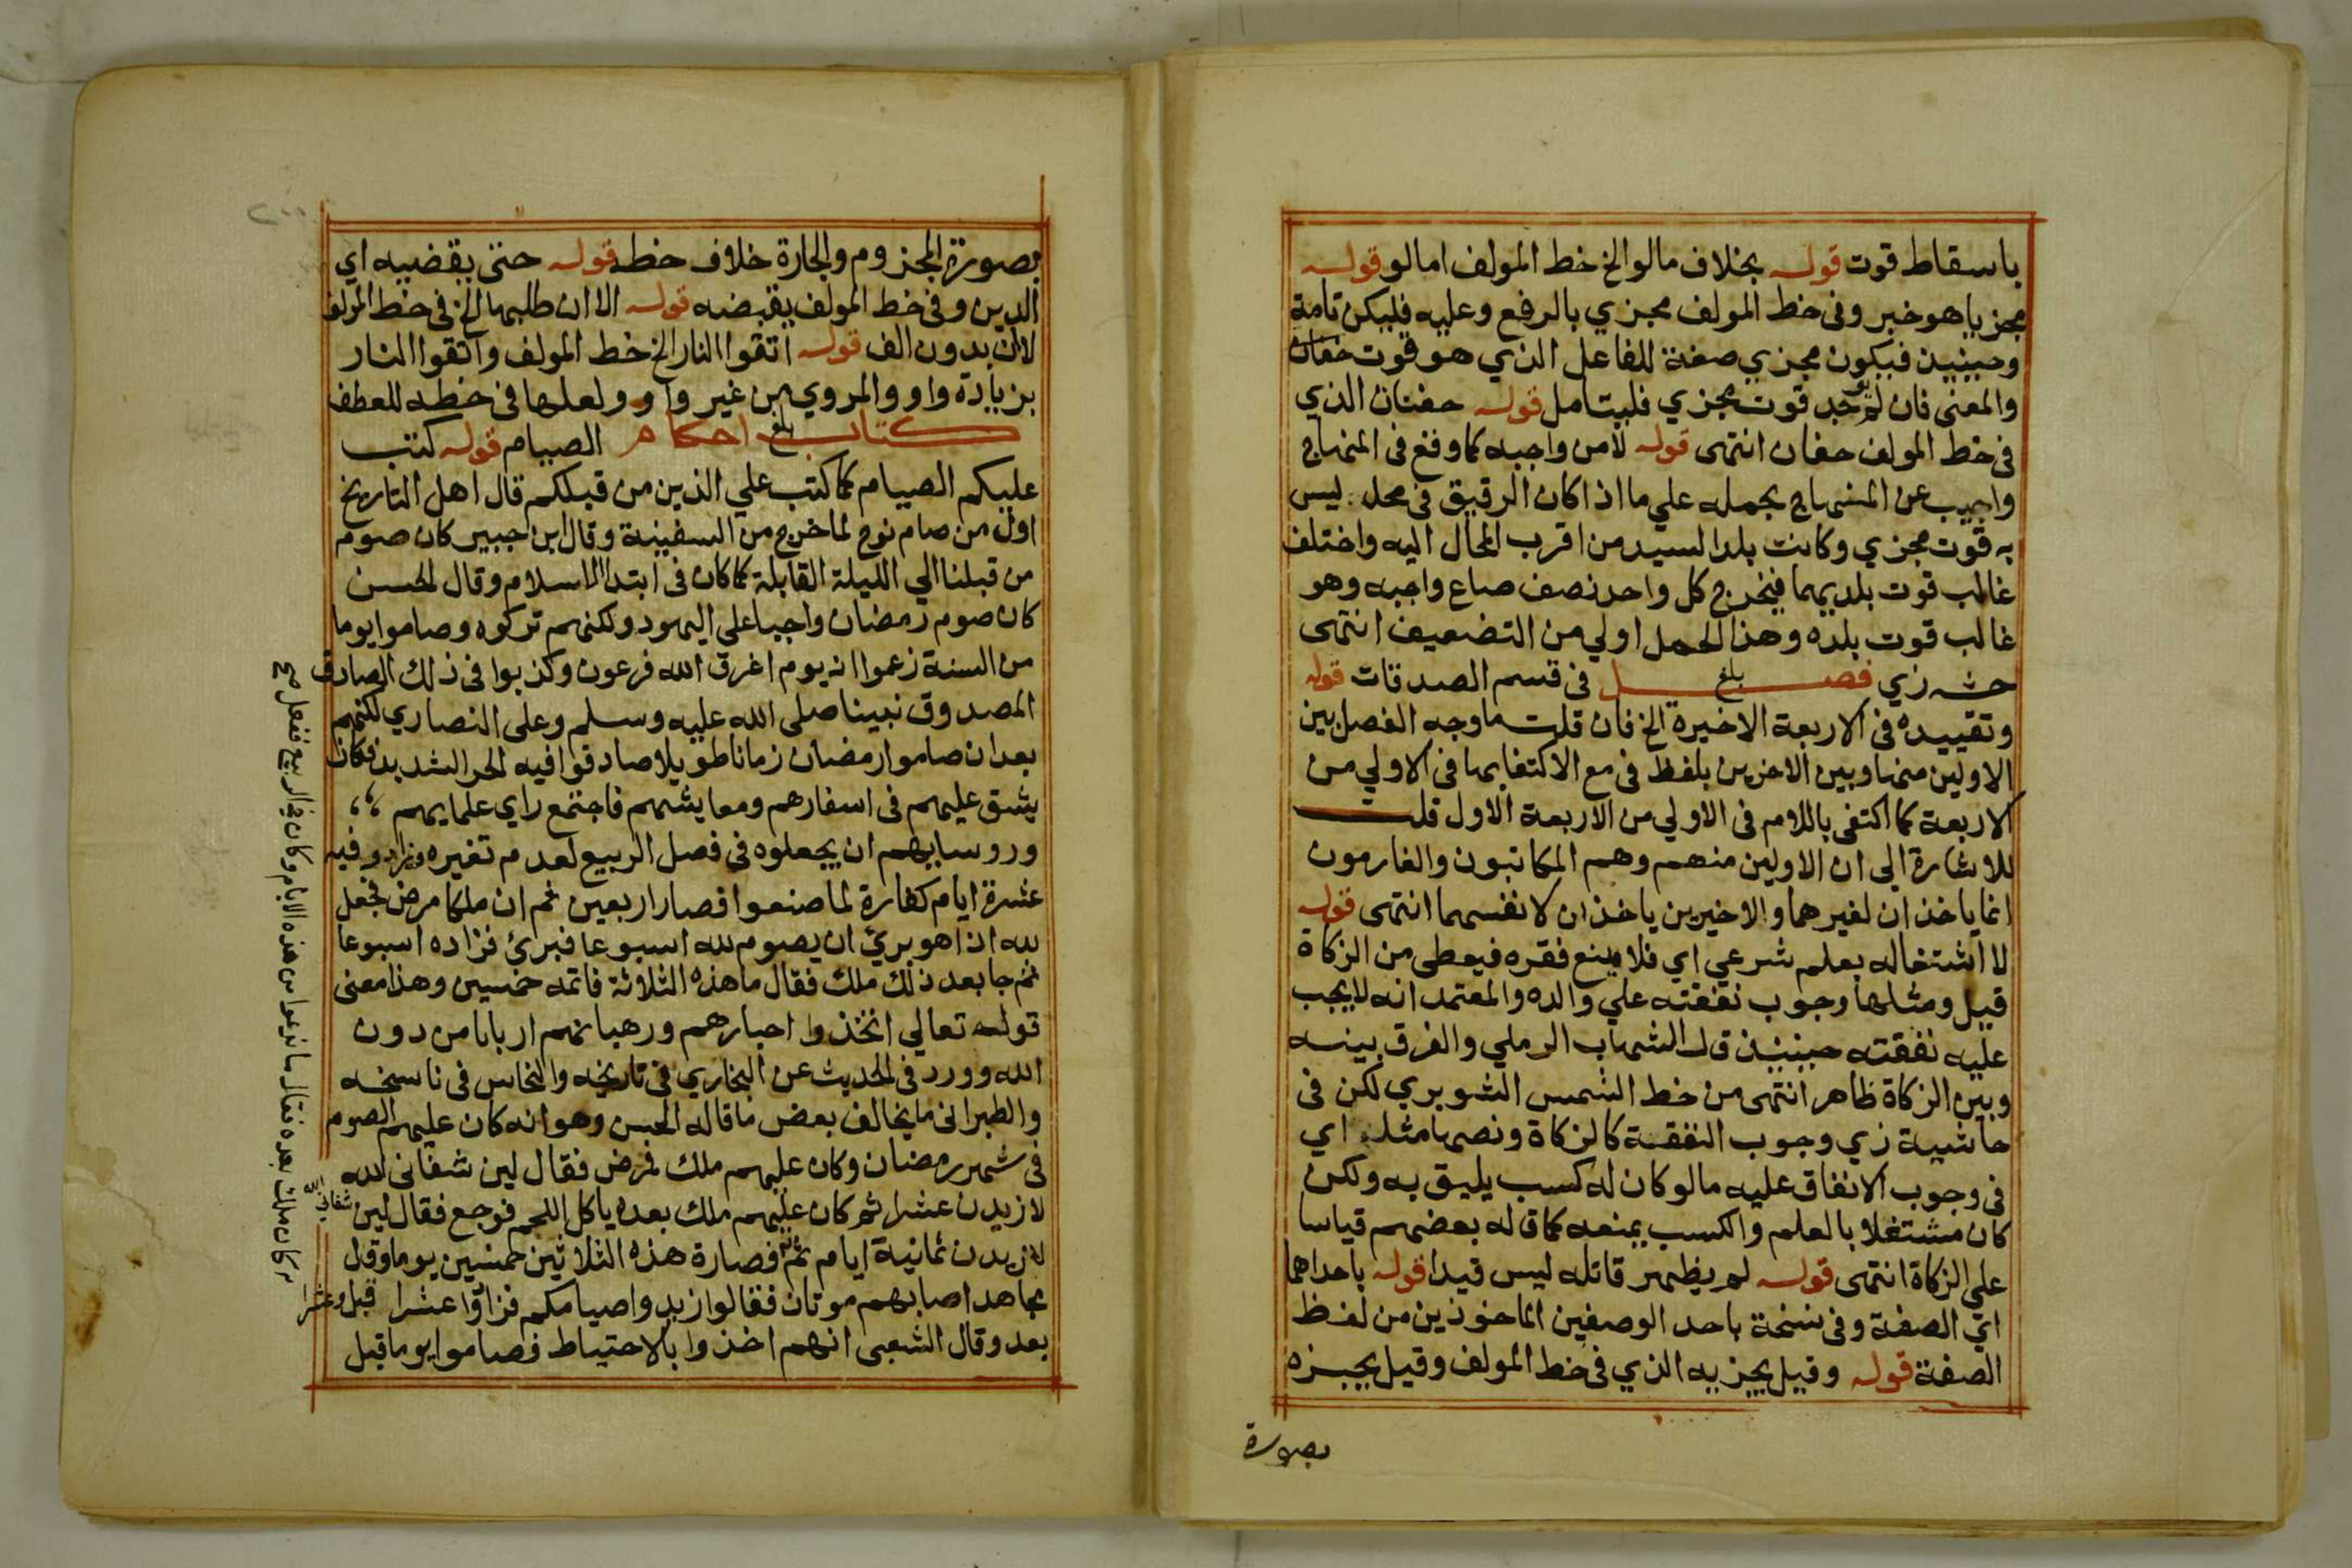 باسقاط قوت قوله بخلاف مالو الخ خط المولف امالو قوله
مجزيا هو خبر وفى خط المولف مجزي بالرفع وعليه فليكن تامة
وحينيذ فيكون مجزي صفة للفاعل الذي هو قوت حفان
والمعنى فان لم يوجد قوت مجزي فليتامل قوله حفنان الذي
فى خط المولف حفان انتهى قوله لامن واجبه كما وقع فى المنهاج
واجيب عن المنهاج بحمله علي ما اذا كان الرقيق فى محل ليس
به قوت مجزي وكانت بلد السيد من اقرب المحال اليه واختلف
غالب قوت بلديهما فيخرج كل واحد نصف صاع واجبه وهو
غالب قوت بلده وهذا الحمل اولي من التضعيف انتهى
حشـ زي فصل بلغ فى قسم الصدقات قوله
وتقييده فى الاربعة الاخيرة الخ فان قلت ما وجه الفصل بين
الاولين منها وبين الاخرين بلفظ فى مع الاكتفا بها فى الاولي من
الاربعة كما اكتفى باللام فى الاولي من الاربعة الاول قلت
للاشارة الى ان الاولين منهم وهم المكاتبون والغارمون
انما ياخذان لغيرهما والاخيرين ياخذان لانفسهما انتهى قوله
لا اشتغاله بعلم شرعي اي فلا يمنع فقره فيعطى من الزكاة
قيل ومثلها وجوب نفقته علي والده والمعتمد انه لا يجب
عليه نفقته حينيذ قال الشهاب الرملي والفرق بينه
وبين الزكاة ظاهر انتهى من خط الشمس الشوبري لكن فى
حاشية زي وجوب النفقة كالزكاة ونصها مثله اي
فى وجوب الانفاق عليه مالو كان له كسب يليق به ولكن
كان مشتغلا بالعلم والكسب يمنعه كما قاله بعضهم قياسا
على الزكاة انتهى قوله لم يظهر قاتله ليس قيدا قوله باحداهما
اي الصفة وفى نسخة باحد الوصفين الماخوذين من لفظ
الصفة قوله وقيل يجزيه الذي فى خط المولف وقيل يجزه
بصورة
بصورة المجزوم والجارة خلاف خطه قوله حتى يقضيه اي
الدين وفى خط المولف يقبضه قوله الا ان طلبها الخ فى خط المولف
لان بدون الف قوله اتقوا النار الخ خط المولف واتقوا النار
بزيادة واو والمروي من غير واو ولعلها فى خطه للعطف
كتاب بلغ احكام الصيام قوله كتب
عليكم الصيام كما كتب علي الذين من قبلكم قال اهل التاريخ
اول من صام نوح لما خرج من السفينة وقال ابن جبير كان صوم
من قبلنا الي الليلة القابلة كما كان فى ابتدا الاسلام وقال الحسن
كان صوم رمضان واجبا على اليهود ولكنهم تركوه وصاموا يوما
من السنة زعموا انه يوم اغرق الله فرعون وكذبوا فى ذلك الصادق
المصدوق نبينا صلى الله عليه وسلم وعلى النصاري لكنهم
بعد ان صاموا رمضان زمانا طويلا صادفوا فيه الحر الشديد فكان
يشق عليهم فى اسفارهم ومعايشهم فاجتمع راي علمايهم
وروسايهم ان يجعلوه فى فصل الربيع لعدم تغيره وزادو فيه
عشرة ايام كفارة لما صنعوا فصار اربعين ثم ان ملكا مرض فجعل
لله ان هو بريء ان يصوم لله اسبوعا فبرئ فزاده اسبوعا
ثم جا بعد ذلك ملك فقال ما هذه الثلاثة فاتمه خمسين وهذا معنى
قوله تعالي اتخذوا احبارهم ورهبانهم اربابا من دون
الله وورد فى الحديث عن البخاري فى تاريخه والنحاس فى ناسخه
والطبرانى ما يخالف بعض ما قاله الحسن وهو انه كان عليهم الصوم
فى شهر رمضان وكان عليهم ملك فمرض فقال لين شفانى الله
لازيدن عشرا ثم كان عليهم ملك بعده ياكل اللحم فوجع فقال لين شفانى الله
لازيدن ثمانية ايام ثم فصارة هذه الثلاثين خمسين يوما وقال
مجاهد اصابهم موتان فقالوا زيدوا صيامكم فزادوا عشرا قبل وعشرا
بعد وقال الشعبى انهم اخذوا بالاحتياط فصاموا يوما قبل
كان ملك بعده فقال ما تدعوا من هذه الايام وكان فى الربيع ففعل صح